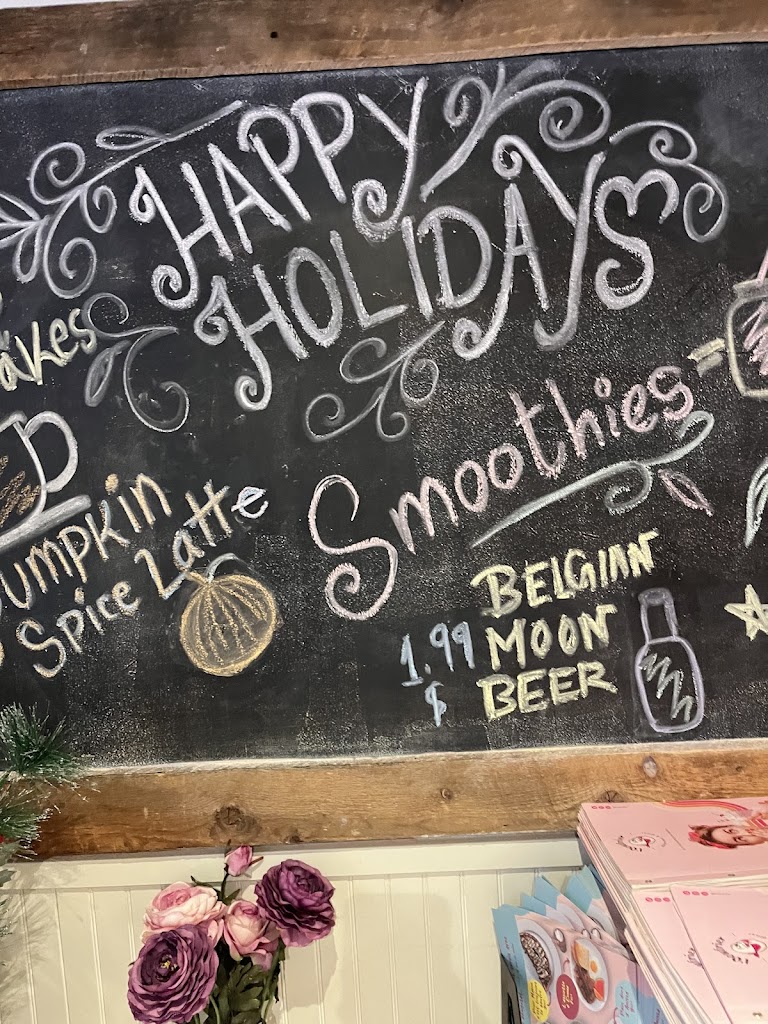 HAPPY
HOLIDAYS
akes
Smoothies
Pumpkin
Spice Latte
BELGIAN
1.99 MOON
$ BEER